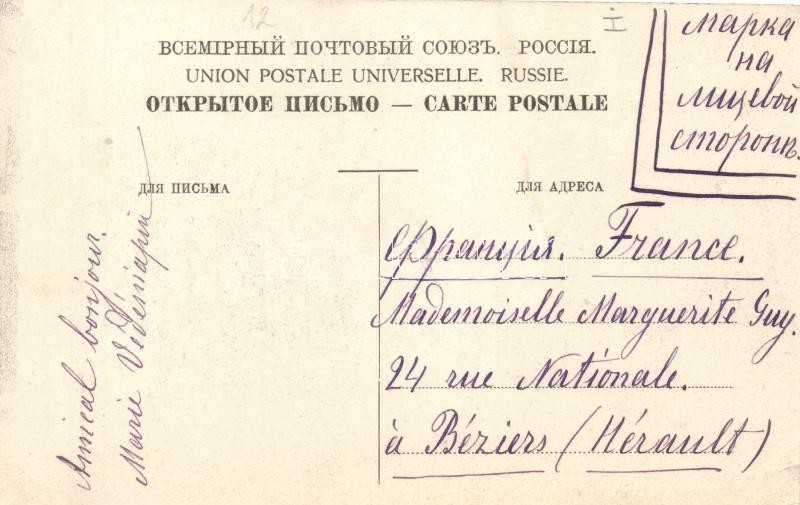 12
ВСЕМІРНЫЙ ПОЧТОВЫЙ СОЮЗЪ. РОССІЯ.
UNION POSTALE UNIVERSELLE. RUSSIE.
ОТКРЫТОЕ ПИСЬМО — CARTE POSTALE
Марка
на
лицевой
сторонѣ.
ДЛЯ ПИСЬМА
ДЛЯ АДРЕСА
Amical bonjour.
Marie
Франція. France.
Mademoiselle Marguerite Guy.
24 rue Nationale.
à Béziers (Hérault)